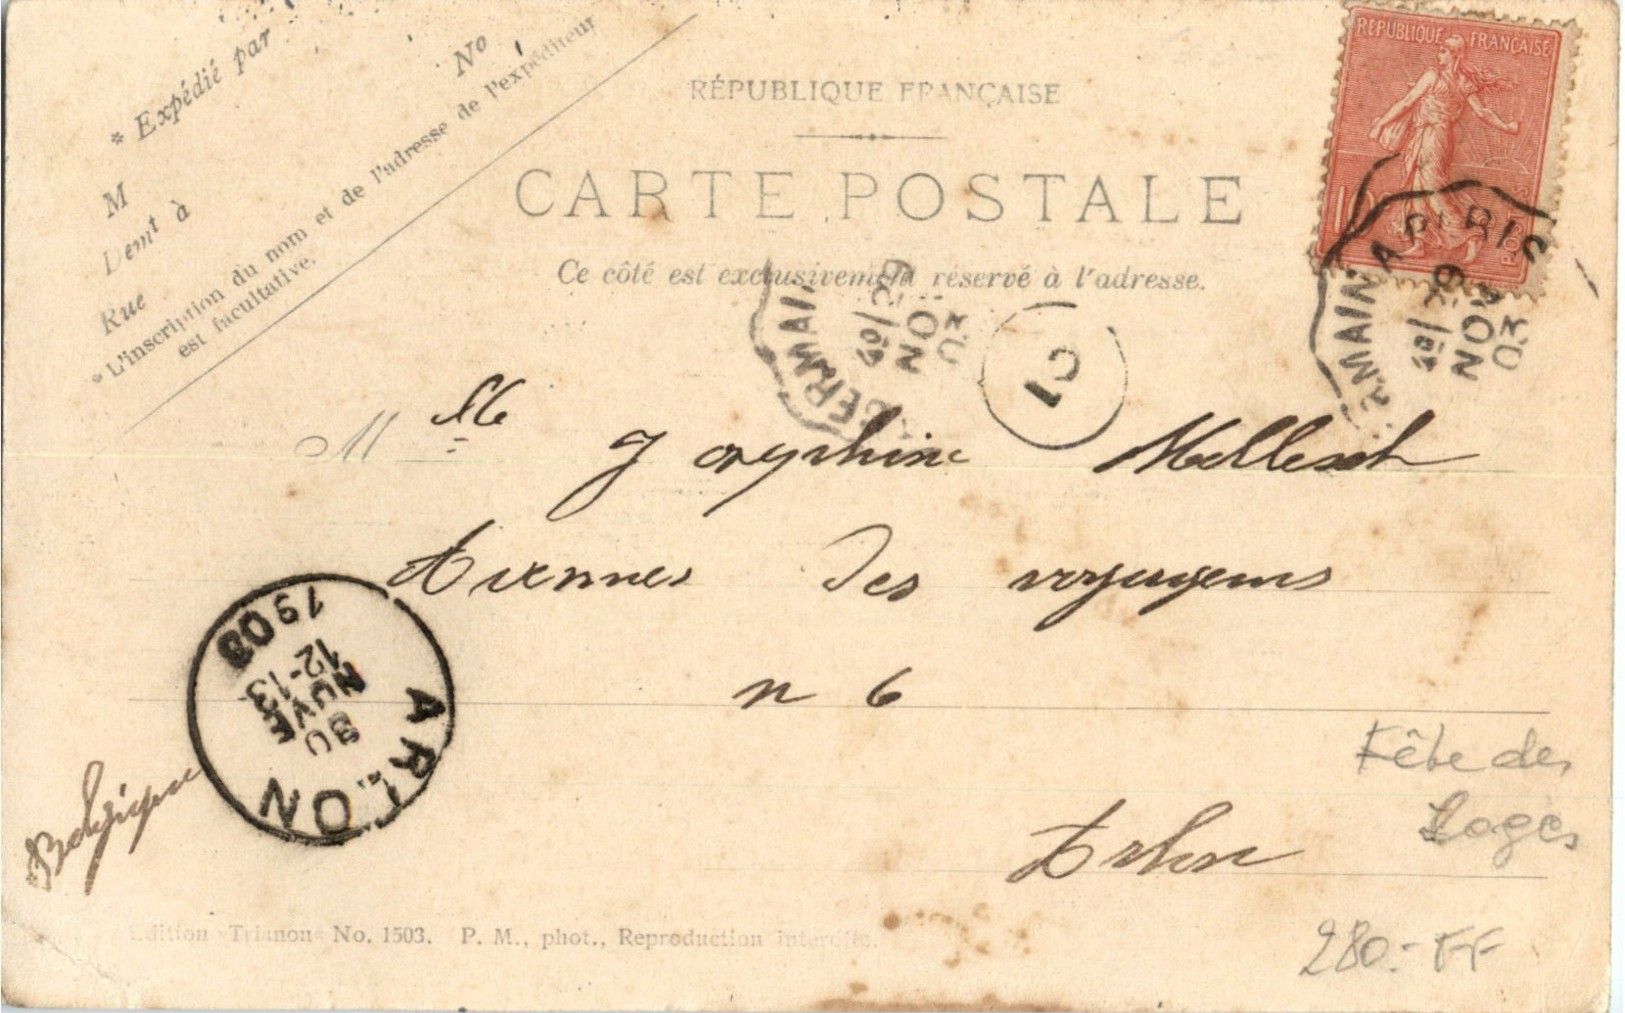 * Expédié par
No
M
Demt à
Rue
* L'inscription du nom et de l'adresse de l'expéditeur
est facultative.
RÉPUBLIQUE FRANÇAISE
CARTE POSTALE
Ce côté est exclusivement réservé à l'adresse.
REPUBLIQUE FRANÇAISE
10
POSTES
RMAIN A PARIS
NOV
03
GERMAI
NOV
03
2
Mlle Josephine
des voyageurs
n 6
Arlon
Belgique
ARLON
30
NOVE
12-13
1903
Fête des
Loges
280.- FF
Edition Trianon No. 1503. P. M., phot., Reproduction Interdite.